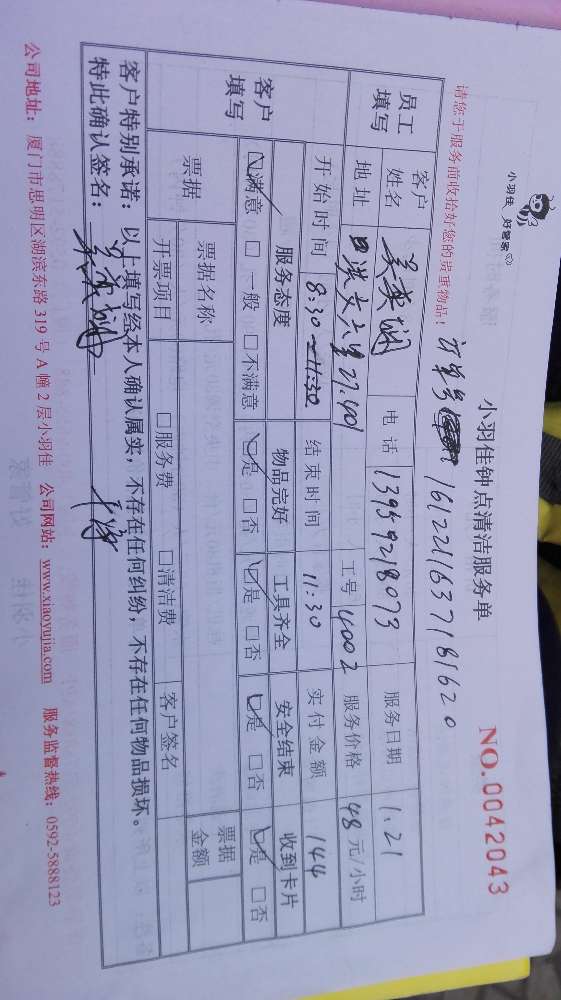 小羽佳 好管家
小羽佳钟点清洁服务单
NO.0042043
请您于服务前收拾好您的贵重物品！ 订单号 1612211637181620
员工填写 客户姓名 电话 13959218073 服务日期 1.21
地址 工号 4002 服务价格 48 元/小时
开始时间 8:30-11:30 结束时间 11:30 实付金额 144
客户填写 服务态度 物品完好 工具齐全 安全结束 收到卡片
☑满意 □一般 □不满意 ☑是 □否 ☑是 □否 ☑是 □否 ☑是 □否
票据 票据名称 票据金额
开票项目 □服务费 □清洁费 客户签名
客户特别承诺：以上填写经本人确认属实，不存在任何纠纷，不存在任何物品损坏。
特此确认签名：
公司地址：厦门市思明区湖滨东路 319 号 A 幢 2 层小羽佳 公司网站：www.xiaoyujia.com 服务监督热线：0592-5888123